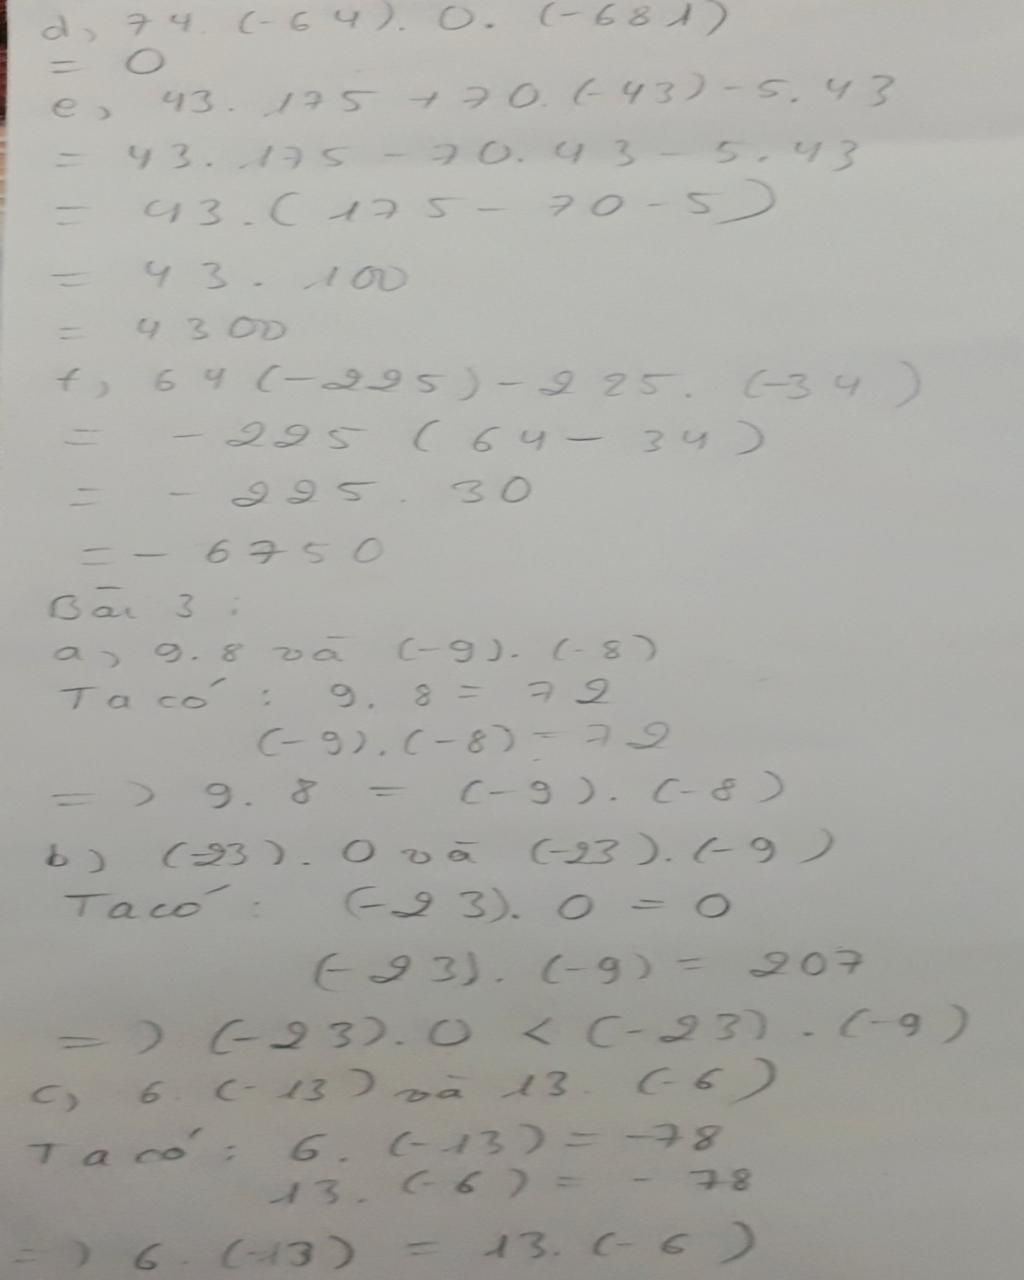 d, 74. (-64). 0. (-681)
= 0
e, 43. 175 + 70. (-43) - 5. 43
= 43. 175 - 70. 43 - 5. 43
= 43. (175 - 70 - 5)
= 43. 100
= 4300
f, 64 (-225) - 225. (-34)
= - 225 (64 - 34)
= - 225. 30
= - 6750
Bài 3:
a, 9. 8 và (-9). (-8)
Ta có: 9. 8 = 72
(-9). (-8) = 72
=) 9. 8 = (-9). (-8)
b) (-23). 0 và (-23). (-9)
Ta có: (-23). 0 = 0
(-23). (-9) = 207
=) (-23). 0 < (-23). (-9)
c, 6. (-13) và 13. (-6)
Ta có: 6. (-13) = -78
13. (-6) = - 78
=) 6. (-13) = 13. (-6)